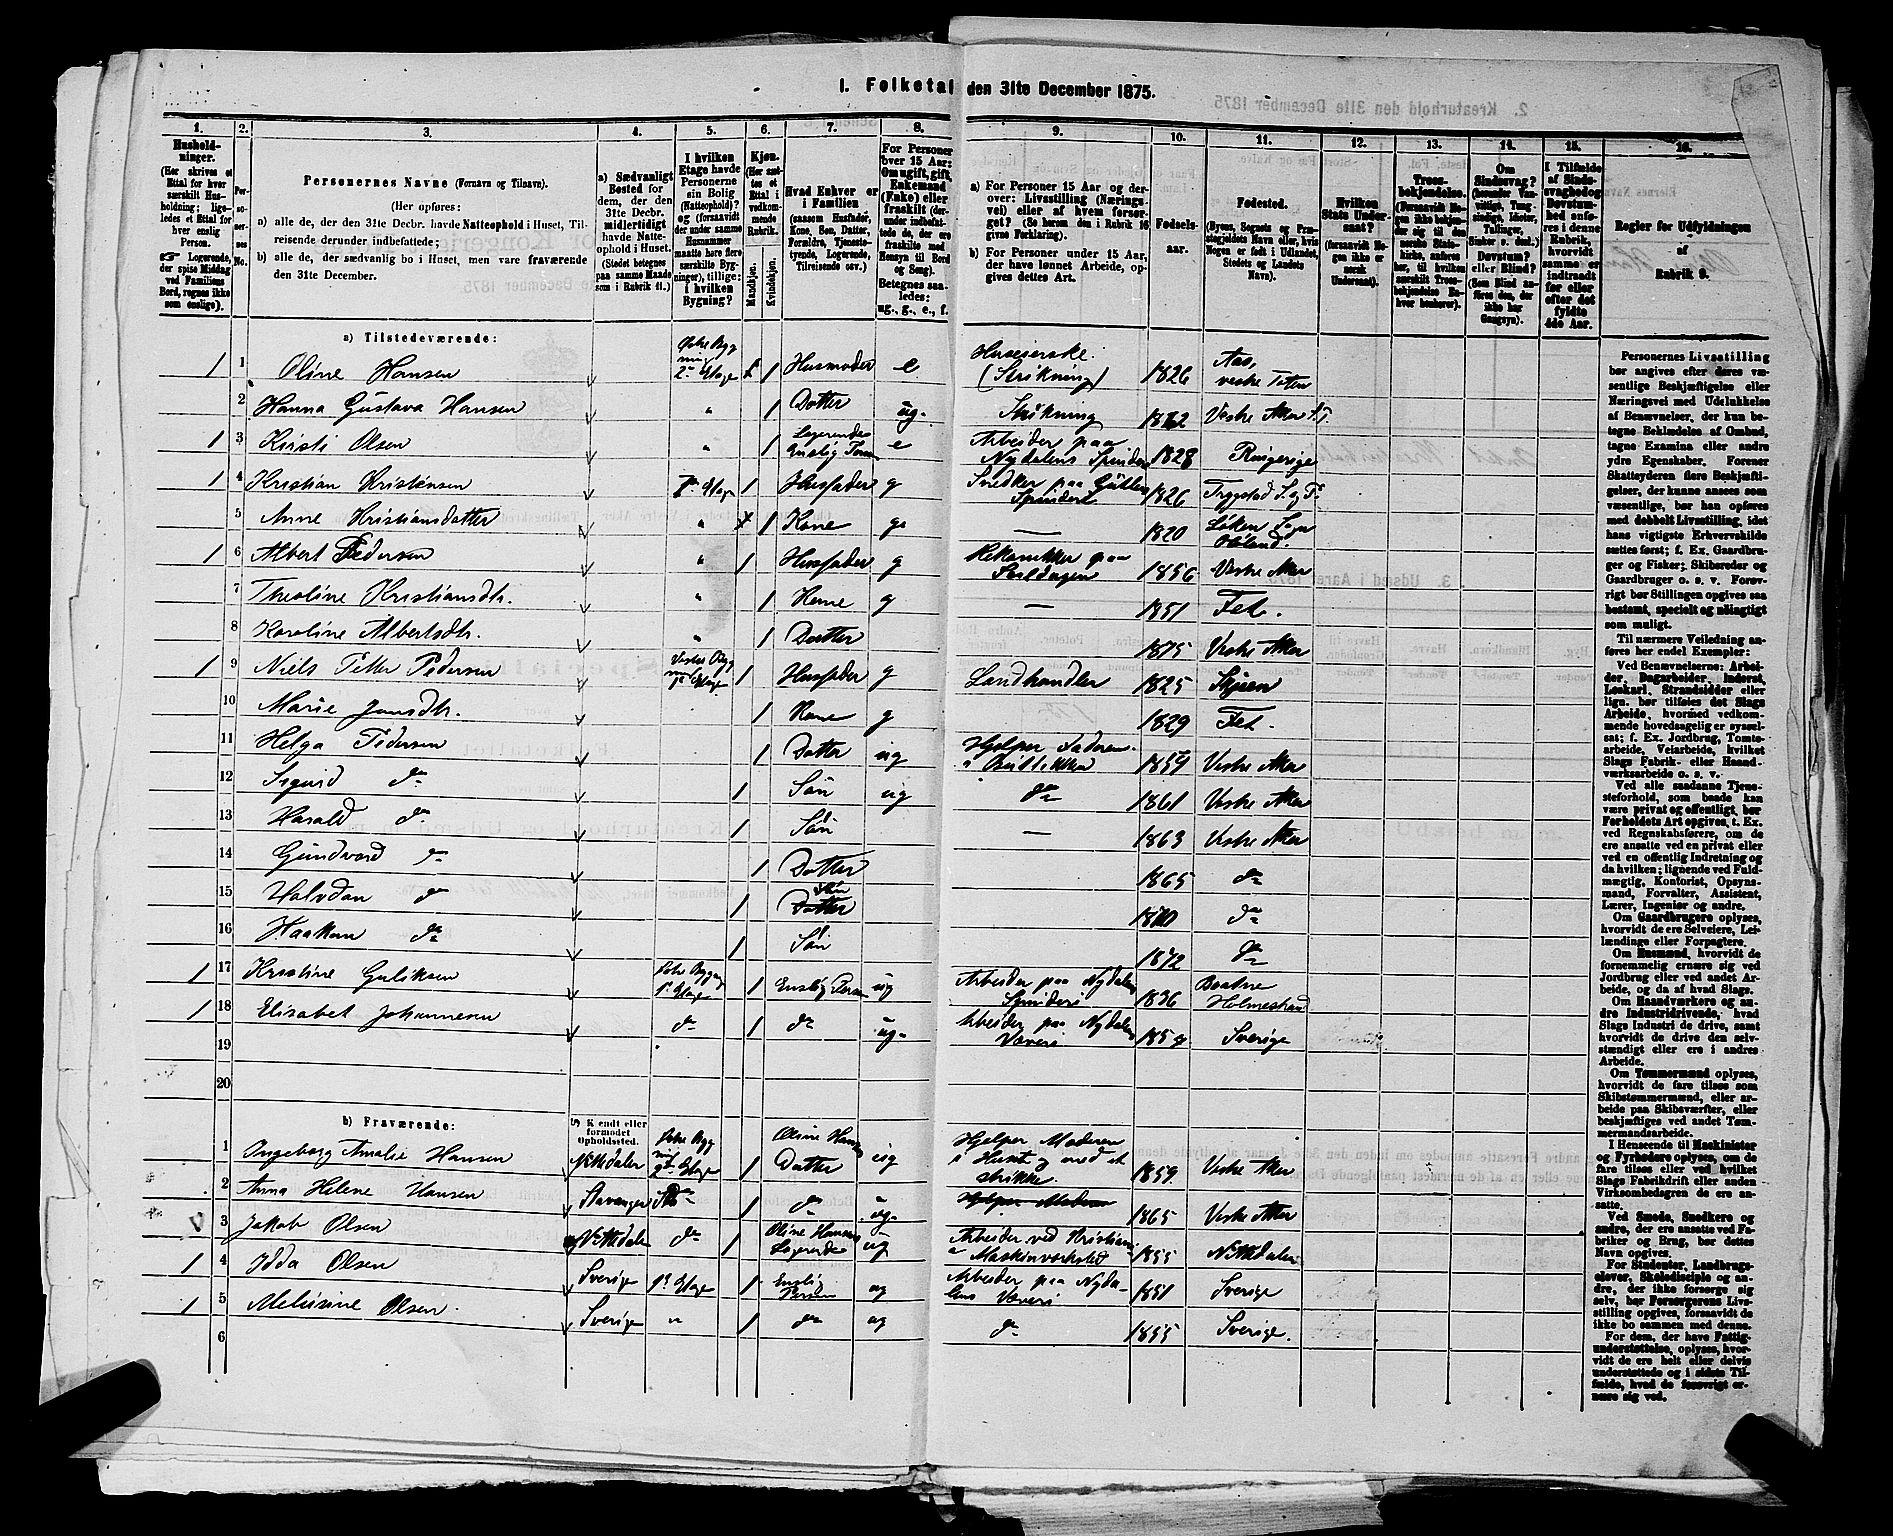 1. Folketal den 31te December 1875.
1.
Husholdninger.
(Her skrives et Ettal for hver særskilt Husholdning; ligeledes et Ettal for hver enslig Person.
Logerende, der spise Middag ved Familiens Bord, regnes ikke som enslige).
2.
Personernes No.
3.
Personernes Navne (Fornavn og Tilnavn).
(Her opføres:
a) alle de, der den 31te Decbr. havde Natteophold i Huset, Tilreisende derunder indbefattede;
b) alle de, der sædvanlig bo i Huset, men vare fraværende den 31te December.
4.
a) Sædvanligt Bosted for dem, der den 31te Decbr. midlertidigt havde Natteophold i Huset.
(Stedet betegnes paa samme Maade som i Rubrik 11.)
5.
I hvilken Etage havde Personerne sin Bolig (Natteophold)? og (forsaavidt der under samme Husnummer maatte høre flere særskilte Bygninger), tillige: i hvilken Bygning?
6.
Kjøn.
(Her sættes et Ettal i vedkommende Rubrik.
Mandkjøn.
Kvindekjøn.
7.
Hvad Enhver er i Familien
(saasom Husfader, Kone, Søn, Datter, Forældre, Tjenestetyende, Logerende, Tilreisende osv.)
8.
For Personer over 15 Aar: Om ugift, gift, Enkemand (Enke) eller fraskilt (derunder indbefattede de, der ere fraskilte med Hensyn til Bord og Seng).
Betegnes saaledes:
ug., g., e., f.
9.
a) For Personer 15 Aar og derover: Livsstilling (Næringsvei) eller af hvem forsørget? (Se herom den i Rubrik 16 givne Forklaring).
b) For Personer under 15 Aar, der have lønnet Arbeide, opgives dettes Art.
10.
Fødselsaar.
11.
Fødested.
(Byens, Sognets og Præstegjeldets Navn eller, hvis Nogen er født i Udlandet, Stedets og Landets Navn).
12.
Hvilken Stats Undersaat?
(forsaavidt Nogen ikke er norsk Undersaat).
13.
Troesbekjendelse.
(Forsaavidt Nogen ikke bekjender sig til den norske Statskirke, anføres her, til hvilken særskilt Troesbekjendelse Enhver henhører).
14.
Om Sindssvag? (herunder Vanvittige, Tungsindige, Idioter, Tullinger, Sinker o. desl.). Døvstum? eller Blind? (Som Blind anføres den, der ikke har Gangsyn).
15.
I Tilfælde af Sindssvaghed og Døvstumhed anføres i denne Rubrik, hvorvidt samme er indtraadt før eller efter det fyldte 4de Aar.
16.
Regler for Udfyldningen
af
Rubrik 9.
a) Tilstedeværende:
1 1 Oline Hansen Østre Bygning 2den Etage 1 Husmoder e Huseierske. (Strikning) 1826 Aas, vestre Toten
2 Hanna Gustava Hansen " 1 Datter ug. Strikning 1862 Vestre Aker
1 3 Kirsti Olsen " 1 Logerende Enslig e Arbeider paa Nydalens Spinderi 1828 Ringerige
1 4 Kristian Kristensen 1ste Etage 1 Husfader g Snedker paa Spinderi 1826 Trygstad
5 Anne Kristiansdatter " 1 Kone g Løken Sogn Høland. 1820
1 6 Albert Pedersen " 1 Husfader g Mekanikker paa Seildugen 1856 Vestre Aker
7 Theoline Kristiansdtr. " 1 Kone g — 1851 Fet.
8 Karoline Albertsdtr. " 1 Datter 1875 Vestre Aker
1 9 Niels Petter Pedersen Vestre Bygning 1ste Etage 1 Husfader g Landhandler 1825 Skjien
10 Marie Jensdtr. 1 Kone g 1829 Fet.
11 Helga Pedersen 1 Datter ug Hjelper Faderen i Butikken 1859 Vestre Aker
12 Sigurd do 1 Søn ug do 1861 Vestre Aker
13 Harald do 1 Søn — 1863 Vestre Aker
14 Gundvord do 1 Datter 1865 do
15 Halvdan do 1 Søn Datter 1870 do
16 Haakon do 1 Søn 1872 do
1 17 Kristine Guliksen Østre Bygning 1ste Etage 1 Enslig Person ug Arbeider paa Nydalens Spinderi 1836 Holmestrand
1 18 Elisabet Johannesen do 1 do ug. Arbeider paa Nydalens Væveri 1859 Sverige
19
20
b) Fraværende:
b) Kjendt eller formodet Opholdssted.
1 Ingeborg Amalie Hansen Nittedalen Østre Bygning 2den Etage 1 Oline Hansen Datter ug Hjelper Moderen i Huset og med at strikke 1859 Vestre Aker
2 Anna Helene Hansen Stavanger 1 do ug. Hjelper Moderen 1865 Vestre Aker
3 Jakob Olsen Nittedalen do 1 Oline Hansens Logerende ug Arbeider ved Kristiania Maskinværksted 1855 Nittedalen
1 4 Idda Olsen Sverige 1ste Etage 1 Enslig Person ug Arbeider paa Nydalens Væveri 1851 Sverige
1 5 Melusine Olsen. Sverige " 1 do ug do 1855 Sverige.
6
Personernes Livsstilling bør angives efter deres væsentlige Beskjæftigelse eller Næringsvei med Udelukkelse af Benævnelser, der kun betegne Beklædelse af Ombud, tagne Examina eller andre ydre Egenskaber. Forener Skatteyderen flere Beskjæftigelser, der kunne ansees som væsentlige, bør han opføres med dobbelt Livsstilling, idet hans vigtigste Erhvervskilde sættes først; f. Ex. Gaardbruger og Fisker; Skibsreder og Gaardbruger o. s. v. Forøvrigt bør Stillingen opgives saa bestemt, specielt og nøiagtigt som muligt.
Til nærmere Veiledning anføres her endel Exempler:
Ved Benævnelserne: Arbeider, Dagarbeider, Inderst, Løskarl, Strandsidder eller lign. bør tilføies det Slags Arbeide, hvormed vedkommende hovedsagelig er sysselsat; f. Ex. Jordbrug, Tomtearbeide, Veiarbeide, hvilket Slags Fabrik- eller Haandværksarbeide o. s. v.
Ved alle saadanne Tjenesteforhold, som baade kan være privat og offentligt, bør Forholdets Art opgives, t. Ex. ved Regnskabsførere, om de ere ansatte ved en privat eller ved en offentlig Indretning og da hvilken; lignende ved Fuldmægtig, Kontorist, Opsynsmand, Forvalter, Assistent, Lærer, Ingeniør og andre.
Om Gaardbrugere oplyses, hvorvidt de ere Selveiere, Leilændinge eller Forpagtere.
Om Husmænd, hvorvidt de fornemmelig ernære sig ved Jordbrug eller ved andet Arbeide, og da af hvad Slags.
Om Haandværkere og andre Industridrivende, hvad Slags Industri de drive, samt hvorvidt de drive den selvstændigt eller ere i andres Arbeide.
Om Tømmermænd oplyses, hvorvidt de fare tilsøs som Skibstømmermænd, eller arbeide paa Skibsværfter, eller beskjæftiges ved andet Tømmermandsarbeide.
I Henseende til Maskinister og Fyrbødere oplyses, om de fare tilsøs eller ved hvilket Slags Fabrikdrift eller anden Virksomhedsgren de ere ansatte.
Ved Smede, Snedkere og andre, der ere ansatte ved Fabriker og Brug, bør dettes Navn opgives.
For Studenter, Landbrugselever, Skoledisciple og andre, der ikke forsørge sig selv, bør Forsørgerens Livsstilling opgives, forsaavidt de ikke bo sammen med denne.
For dem, der have Fattigunderstøttelse, oplyses, hvorvidt de ere helt eller delvis understøttede og i sidste Tilfælde, hvad de forøvrigt ernære sig ved.